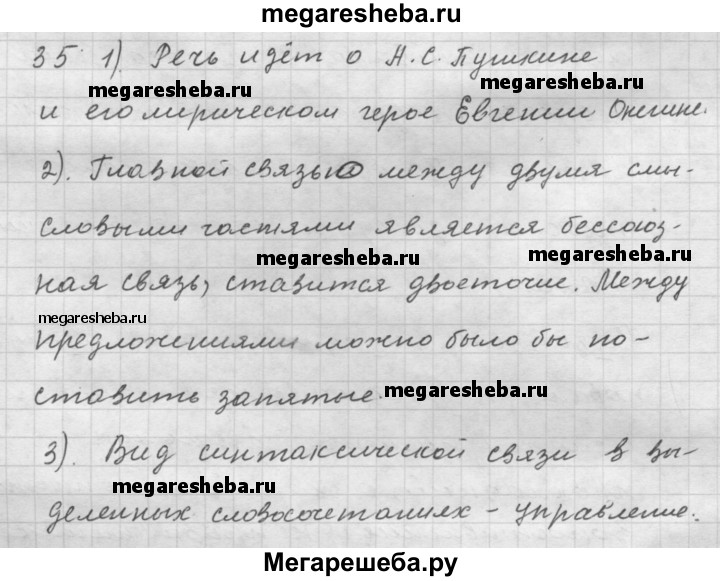 megaresheba.ru
35 1). Речь идёт о А.С. Пушкине
megaresheba.ru
megaresheba.ru
и его лирическом герое Евгении Онегине.
2). Главной связью между двумя смы-
словыми частями является бессоюз-
megaresheba.ru
megaresheba.ru
ная связь, ставится двоеточие. Между
megaresheba.ru
предложениями можно было бы по-
ставить запятые.
megaresheba.ru
3). Вид синтаксической связи в вы-
megaresheba.ru
деленных словосочетаниях - управление.
Мегарешеба.ру